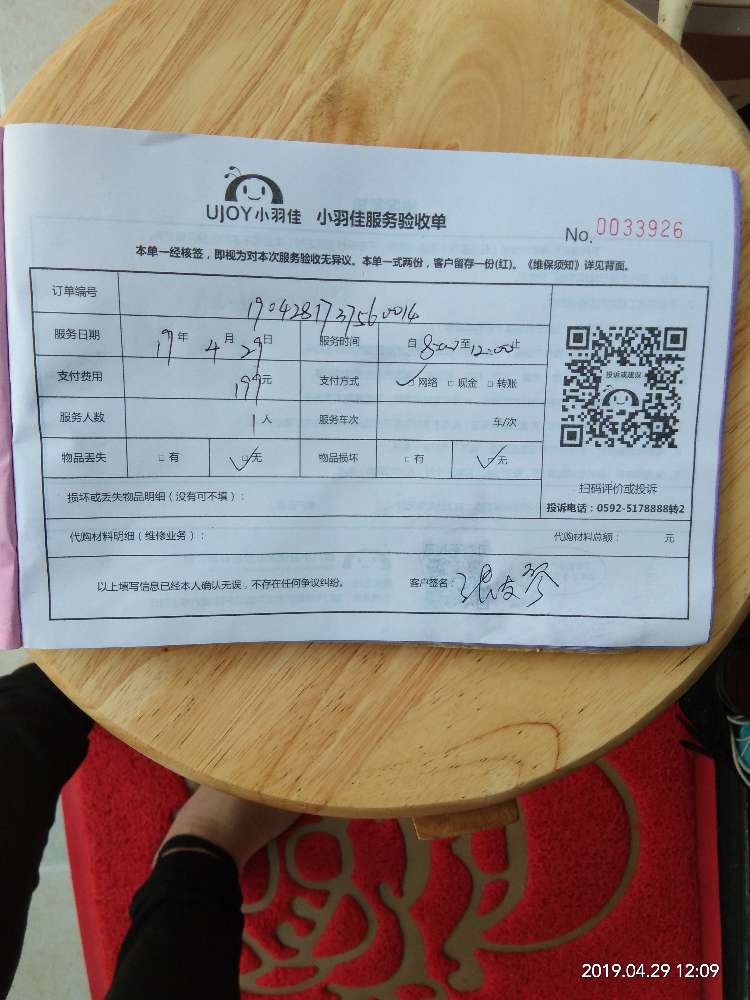 UJOY小羽佳 小羽佳服务验收单
No. 0033926
本单一经核签，即视为对本次服务验收无异议。本单一式两份，客户留存一份(红)。《维保须知》详见背面。
订单编号 190428173756 0014
服务日期 19年 4月 29日 服务时间 自 8:00 至 12:00 止
支付费用 199元 支付方式 ✓□网络 □现金 □转账
服务人数 1人 服务车次 车/次
物品丢失 □有 ✓□无 物品损坏 □有 ✓□无
投诉或建议
扫码评价或投诉
投诉电话：0592-5178888转2
损坏或丢失物品明细（没有可不填）：
代购材料明细（维修业务）： 代购材料总额： 元
以上填写信息已经本人确认无误，不存在任何争议纠纷。 客户签名：张友琴
2019.04.29 12:09